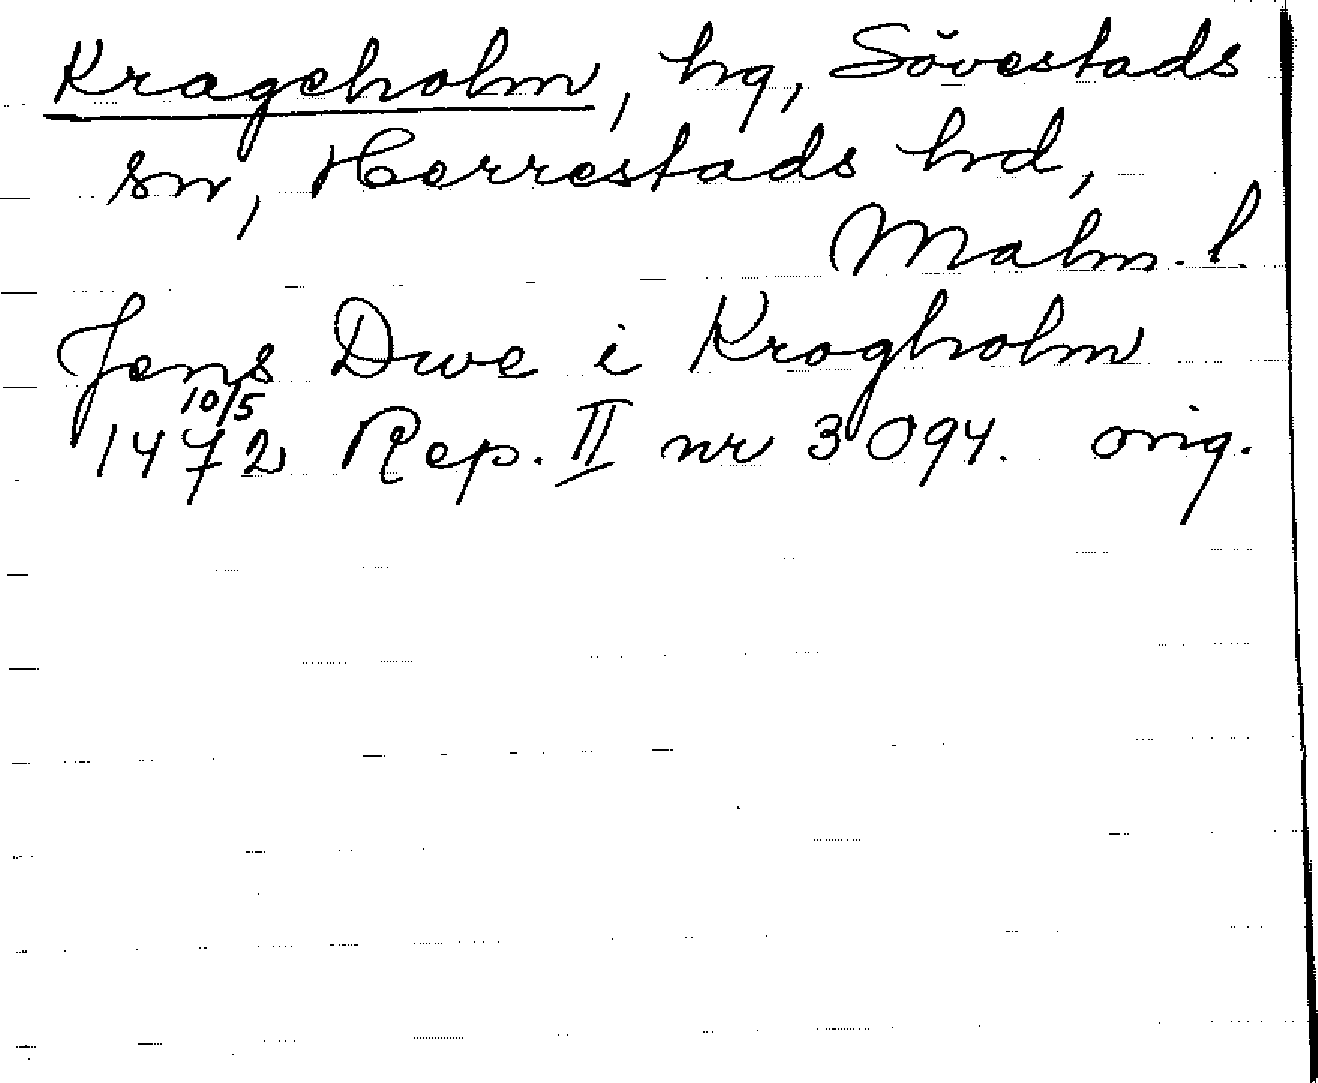 Krageholm, hg, Sövestads
sn, Herrestads hd,
Malm. l.
Jens Dwe i Krogholm
10/5
1472 Rep. II nr 3094. orig.